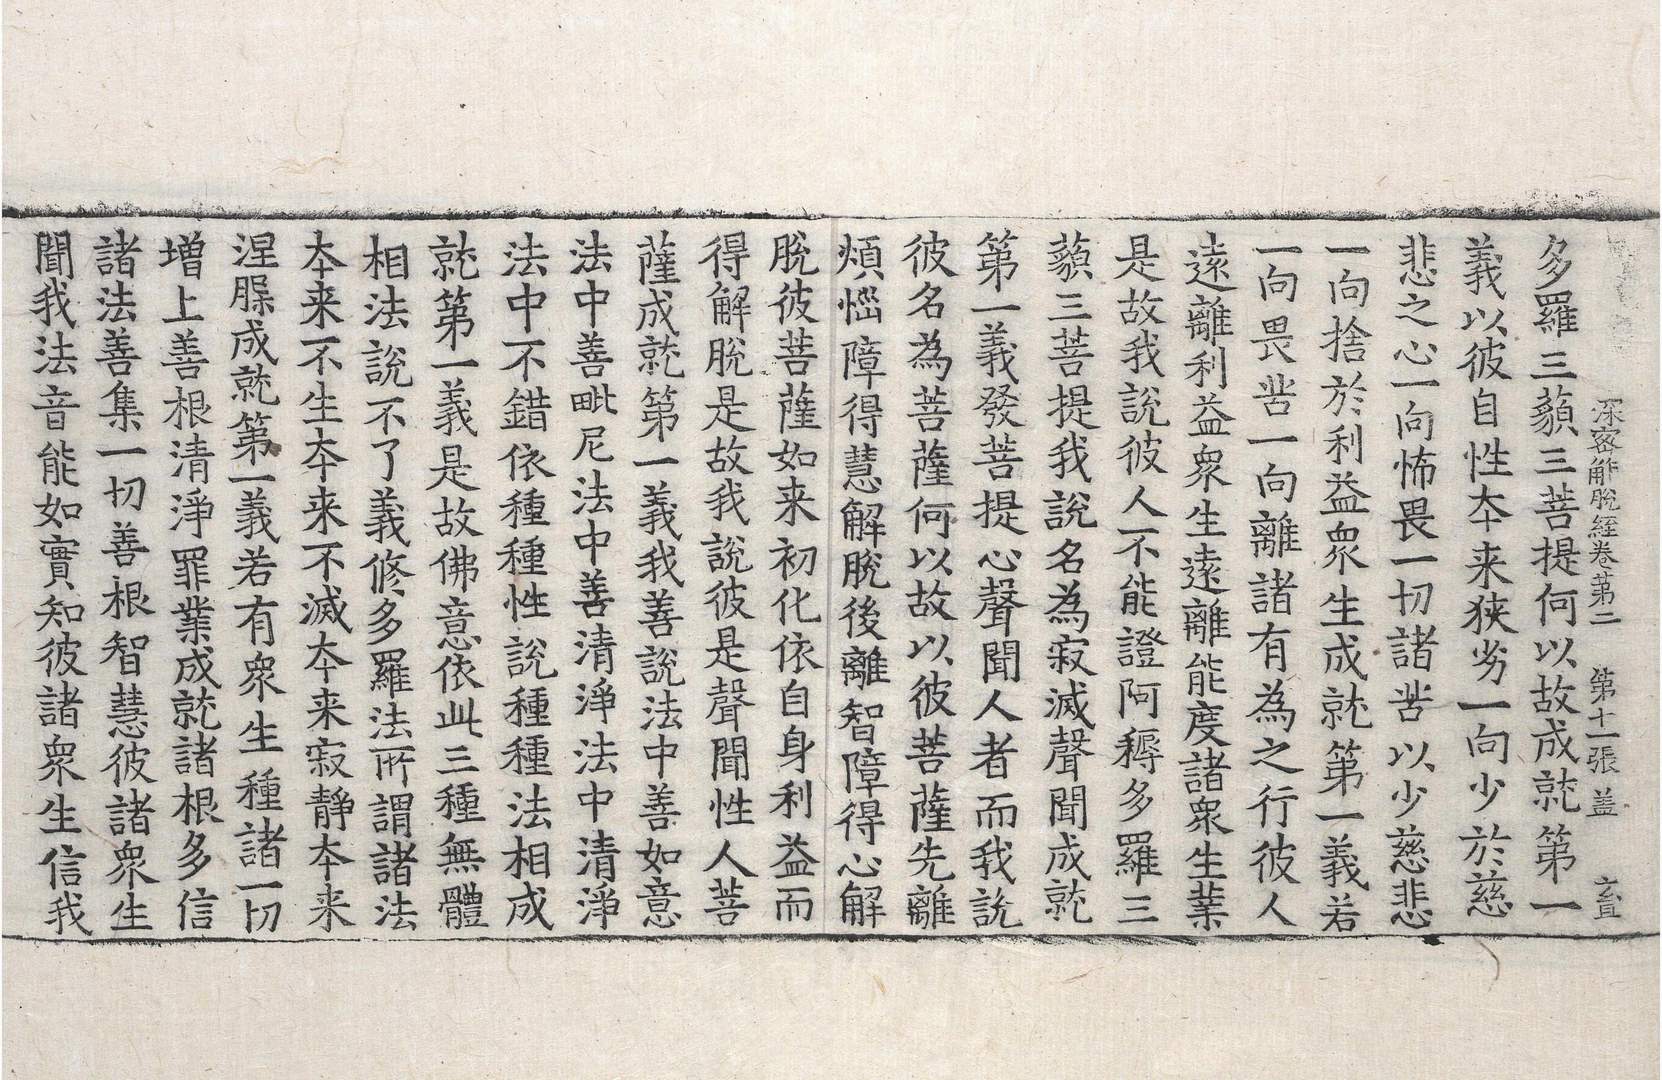 深密解脫經卷第二　第十一張　盖　　𤱶
多羅三藐三菩提何以故成就第一
義以彼自性夲来狹劣一向少於慈
悲之心一向怖畏一切諸苦以少慈悲
一向捨於利益衆生成就第一義若
一向畏苦一向離諸有為之行彼人
遠離利益衆生遠離能度諸衆生業
是故我說彼人不能證阿耨多羅三
藐三菩提我說名為寂滅聲聞成就
第一義發菩提心聲聞人者而我說
彼名為菩薩何以故以彼菩薩先離
煩惱障得慧解脫後離智障得心解
脫彼菩薩如来初化依自身利益而
得解脫是故我說彼是聲聞性人菩
薩成就第一義我善說法中善如意
法中善毗尼法中善清淨法中清淨
法中不錯依種種性說種種法相成
就第一義是故佛意依此三種無體
相法說不了義修多羅法所謂諸法
夲来不生夲来不滅夲来寂靜夲来
涅槃成就第一義若有衆生種諸一切
增上善根清淨罪業成就諸根多信
諸法善集一切善根智慧彼諸衆生
聞我法音能如實知彼諸衆生信我